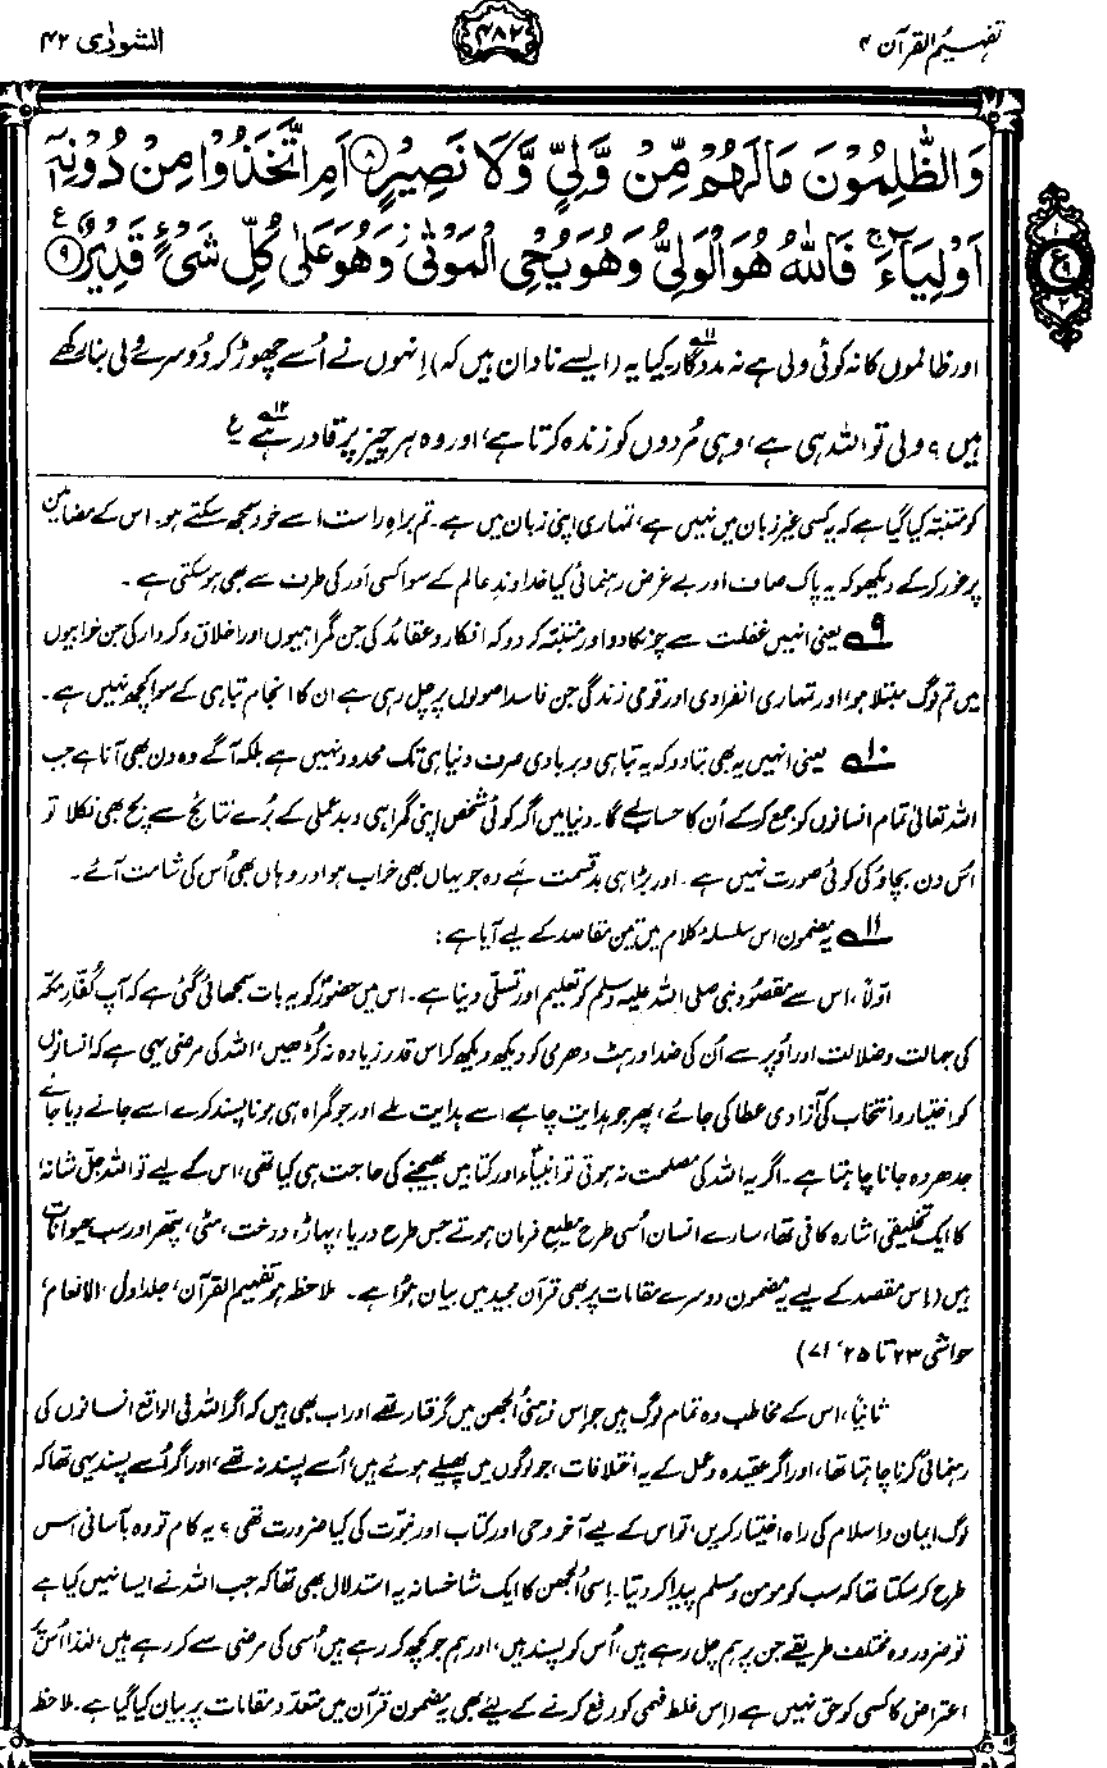 تفہیم القرآن ۴
۴۸۲
الشورٰی ۴۲
وَالظّٰلِمُوْنَ مَا لَهُمْ مِّنْ وَّلِيٍّ وَّلَا نَصِيْرٍ ۸ اَمِ اتَّخَذُوْا مِنْ دُوْنِهٖۤ
اَوْلِيَآءَ ۚ فَاللّٰهُ هُوَ الْوَلِيُّ وَهُوَ يُحْيِ الْمَوْتٰى ۫ وَهُوَ عَلٰى كُلِّ شَيْءٍ قَدِيْرٌ ۹ ع
۱
ع ۹
۲
اور ظالموں کا نہ کوئی ولی ہے نہ مددگار۱۱۔ کیا یہ (ایسے نادان ہیں کہ) اِنہوں نے اُسے چھوڑ کر دُوسرے ولی بنا رکھے
ہیں؟ ولی تو اللہ ہی ہے، وہی مُردوں کو زندہ کرتا ہے، اور وہ ہر چیز پر قادر ہے۱۲ ع
کو متنبّہ کیا گیا ہے کہ یہ کسی غیر زبان میں نہیں ہے، تمہاری اپنی زبان میں ہے۔ تم براہِ راست اسے خود سمجھ سکتے ہو۔ اس کے مضامین
پر غور کر کے دیکھو کہ یہ پاک صاف اور بے غرض رہنمائی کیا خداوندِ عالم کے سوا کسی اَور کی طرف سے بھی ہو سکتی ہے۔
۹ یعنی انہیں غفلت سے چونکا دو اور متنبّہ کر دو کہ افکار و عقائد کی جن گمراہیوں اور اخلاق و کردار کی جن خرابیوں
میں تم لوگ مبتلا ہو، اور تمہاری انفرادی اور قومی زندگی جن فاسد اصولوں پر چل رہی ہے ان کا انجام تباہی کے سوا کچھ نہیں ہے۔
۱۰ یعنی انہیں یہ بھی بتا دو کہ یہ تباہی و بربادی صرف دنیا ہی تک محدود نہیں ہے بلکہ آگے وہ دن بھی آنا ہے جب
اللہ تعالیٰ تمام انسانوں کو جمع کر کے اُن کا حساب لے گا۔ دنیا میں اگر کوئی شخص اپنی گمراہی و بدعملی کے بُرے نتائج سے بچ بھی نکلا تو
اُس دن بچاؤ کی کوئی صورت نہیں ہے۔ اور بڑا ہی بد قسمت ہے وہ جو یہاں بھی خراب ہو اور وہاں بھی اُس کی شامت آئے۔
۱۱ یہ مضمون اس سلسلۂ کلام میں تین مقاصد کے لیے آیا ہے:
اوّلاً، اس سے مقصُود نبی صلی اللہ علیہ وسلم کو تعلیم اور تسلّی دینا ہے۔ اس میں حضورؐ کو یہ بات سمجھائی گئی ہے کہ آپ کُفّارِ مکّہ
کی جہالت و ضلالت اور اُوپر سے اُن کی ضد اور ہٹ دھرمی کو دیکھ دیکھ کر اس قدر زیادہ نہ کُڑھیں، اللہ کی مرضی یہی ہے کہ انسانوں
کو اختیار و انتخاب کی آزادی عطا کی جائے، پھر جو ہدایت چاہے اسے ہدایت ملے اور جو گمراہ ہی ہونا پسند کرے اسے جانے دیا جائے
جدھر وہ جانا چاہتا ہے۔ اگر یہ اللہ کی مصلحت نہ ہوتی تو انبیاء اور کتابیں بھیجنے کی حاجت ہی کیا تھی، اس کے لیے تو اللہ جلّ شانہٗ
کا ایک تخلیقی اشارہ کافی تھا، سارے انسان اُسی طرح مطیع فرمان ہوتے جس طرح دریا، پہاڑ، درخت، مٹی، پتھر اور سب حیوانات
ہیں (اِس مقصد کے لیے یہ مضمون دوسرے مقامات پر بھی قرآن مجید میں بیان ہؤا ہے۔ ملاحظہ ہو تفہیم القرآن، جلد اول، الانعام،
حواشی ۲۳ تا ۲۵، ۷۱)
ثانیاً، اس کے مخاطب وہ تمام لوگ ہیں جو اِس ذہنی اُلجھن میں گرفتار تھے اور اب بھی ہیں کہ اگر اللہ فی الواقع انسانوں کی
رہنمائی کرنا چاہتا تھا، اور اگر عقیدہ و عمل کے یہ اختلافات، جو لوگوں میں پھیلے ہوئے ہیں، اُسے پسند نہ تھے، اور اگر اُسے پسند یہی تھا کہ
لوگ ایمان و اسلام کی راہ اختیار کریں، تو اس کے لیے آخر وحی اور کتاب اور نبوّت کی کیا ضرورت تھی؟ یہ کام تو وہ بآسانی اس
طرح کر سکتا تھا کہ سب کو مومن و مسلم پیدا کر دیتا۔ اِسی اُلجھن کا ایک شاخسانہ یہ استدلال بھی تھا کہ جب اللہ نے ایسا نہیں کیا ہے
تو ضرور وہ مختلف طریقے جن پر ہم چل رہے ہیں، اُس کو پسند ہیں، اور ہم جو کچھ کر رہے ہیں اُسی کی مرضی سے کر رہے ہیں، لہٰذا اس پر
اعتراض کا کسی کو حق نہیں ہے (اِس غلط فہمی کو رفع کرنے کے لیئے بھی یہ مضمون قرآن میں متعدّد مقامات پر بیان کیا گیا ہے۔ ملاحظہ